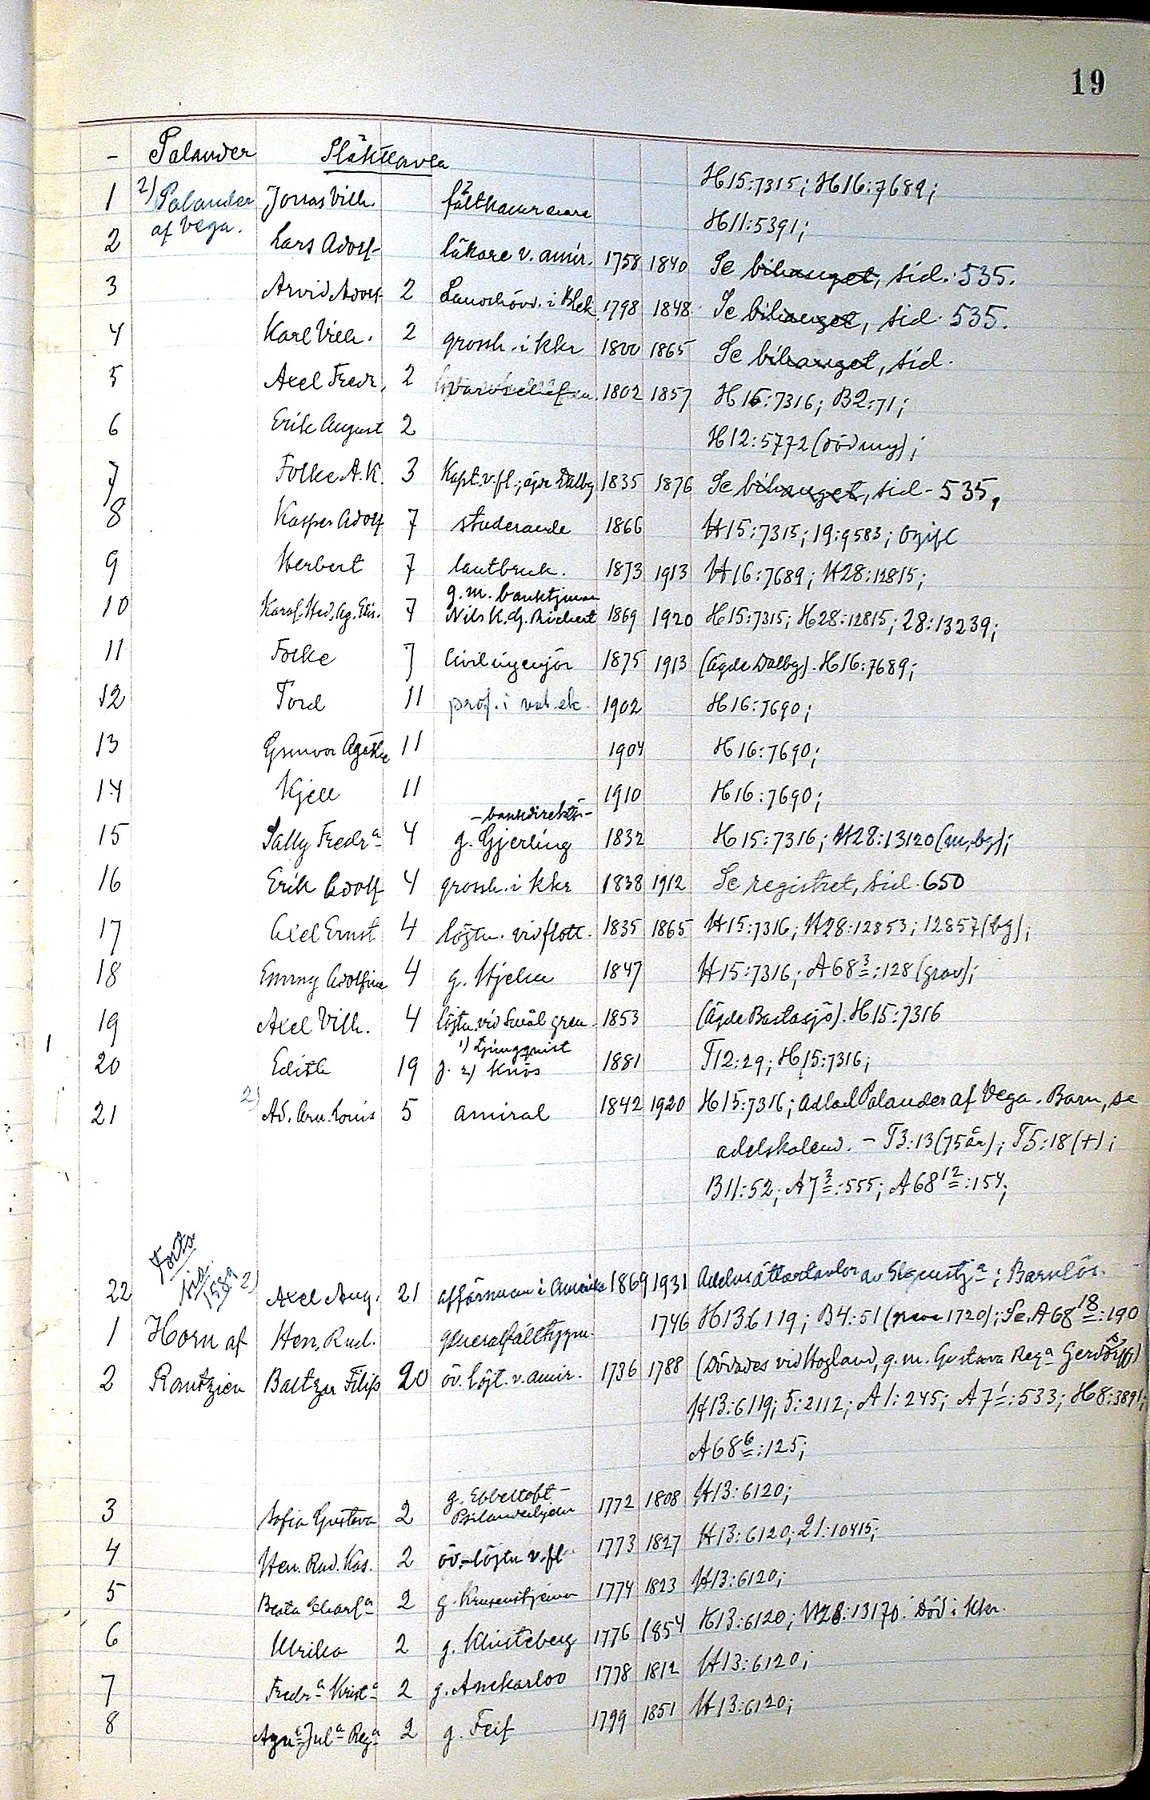 19
- Palander Släkttavla H15:7315; H16:7689;
1 2) Palander af Vega. Jonas Vilh. fältkamrerare H11:5391;
2 Lars Adolf läkare v. amir. 1758 1840 Se bihanget, sid. 535.
3 Arvid Adolf 2 Landshövd. i Blek. 1798 1848 Se bihanget, sid. 535.
4 Karl Vilh. 2 grossh. i kkr 1800 1865 Se bihanget, sid.
5 Axel Fredr. 2 1802 1857 H15:7316; B2:71;
6 Erik August 2 H12:5772 (död ung);
7 Folke A. K. 3 Kapt. v. fl.; ägde Dalby 1835 1876 Se bihanget, sid. 535.
8 Kasper Adolf 7 studerande 1866 H15:7315; 19:9583; Ogift
9 Herbert 7 lantbruk. 1873 1913 H16:7689; H28:12815;
10 Karol. Hed. Ag. Elis. 7 g. m. banktjman Nils K. Gj. Richert 1869 1920 H15:7315; H28:12815; 28:13239;
11 Folke 7 Civilingenjör 1875 1913 (Ägde Dalby). H16:7689;
12 Tord 11 prof. i nat. ek. 1902 H16:7690;
13 Gunvor Agathe 11 1904 H16:7690;
14 Kjell 11 1910 H16:7690;
15 Sally Fredrª 4 - bankdirektör - g. Gjerling 1832 H15:7316; H28:13120 (m, bg);
16 Erik Adolf 4 grossh. i kkr 1838 1912 Se registret, sid. 650
17 Axel Ernst 4 löjtn. vid flott. 1835 1865 H15:7316; H28:12853; 12857 (bg);
18 Emmy Adolfina 4 g. Hjelm 1847 H15:7316; A68³:128 (grav);
19 Axel Vilh. 4 löjtn. vid Smål. gren. 1853 (Ägde Bastasjö). H15:7316
20 Edith 19 g. 1) Ljungquist 2) Knös 1881 T12:29; H15:7316;
21 2) Ad. Arn. Louis 5 amiral 1842 1920 H15:7316; adlad Palander af Vega. Barn, se
adelskalend. - T3:13 (75 år); T5:18 (+);
B11:52; A7³:555; A68¹²:154;
Forts sid. 1589
22 2) Axel Aug. 21 affärsman i Amerika 1869 1931 Adelns ättartavlor av Elgenstjª; Barnlös.
1 Horn af Hen. Rud. generalfälttygm. 1746 H13:6119; B4:51 (1720); Se A68¹⁸:190
2 Rantzien Baltzar Filip 20 öv. löjt. v. amir. 1736 1788 (Dödades vid Hogland, g. m. Gustava Regª Gerdes)
H13:6119; 5:2112; A1:245; A7¹:533; H8:3891;
A68⁶:125;
3 Sofia Gustava 2 g. Ebbestoft - Psilanderhjelm 1772 1808 H13:6120;
4 Hen. Rud. Kas. 2 öv-löjtn v. fl. 1773 1827 H13:6120; 21:10415;
5 Beata Charlª 2 g. Krusenstjerna 1774 1823 H13:6120;
6 Ulrika 2 g. Klinteberg 1776 1854 H13:6120; H28:13170. Död i kkr.
7 Fredrª Kristª 2 g. Anckarloo 1778 1812 H13:6120;
8 Agnª Julª Regª 2 g. Feif 1799 1851 H13:6120;